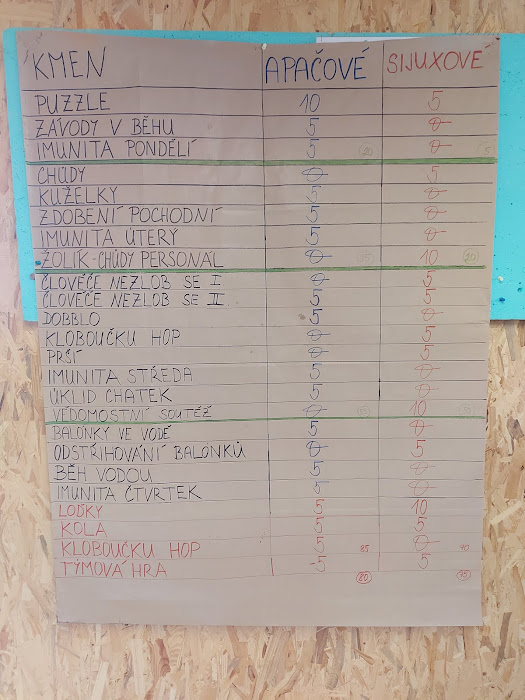 KMEN APAČOVÉ SIJUXOVÉ
PUZZLE 10 5
ZÁVODY V BĚHU 5 0
IMUNITA PONDĚLÍ 5 0
CHŮDY 0 5
KUŽELKY 5 0
ZDOBENÍ POCHODNÍ 5 0
IMUNITA ÚTERÝ 5 0
ŽOLÍK-CHŮDY PERSONÁL 0 10
ČLOVĚČE NEZLOB SE I 0 5
ČLOVĚČE NEZLOB SE II 5 5
DOBBLO 5 0
KLOBOUČKU HOP 0 5
PRŠÍ 0 5
IMUNITA STŘEDA 5 0
ÚKLID CHATEK 5 0
VĚDOMOSTNÍ SOUTĚŽ 0 10
BALÓNKY VE VODĚ 5 0
ODSTŘIHOVÁNÍ BALÓNKŮ 0 5
BĚH VODOU 5 0
IMUNITA ČTVRTEK 5 0
LOĎKY 5 10
KOLA 5 5
KLOBOUČKU HOP 5 0
TÝMOVÁ HRA 5 5